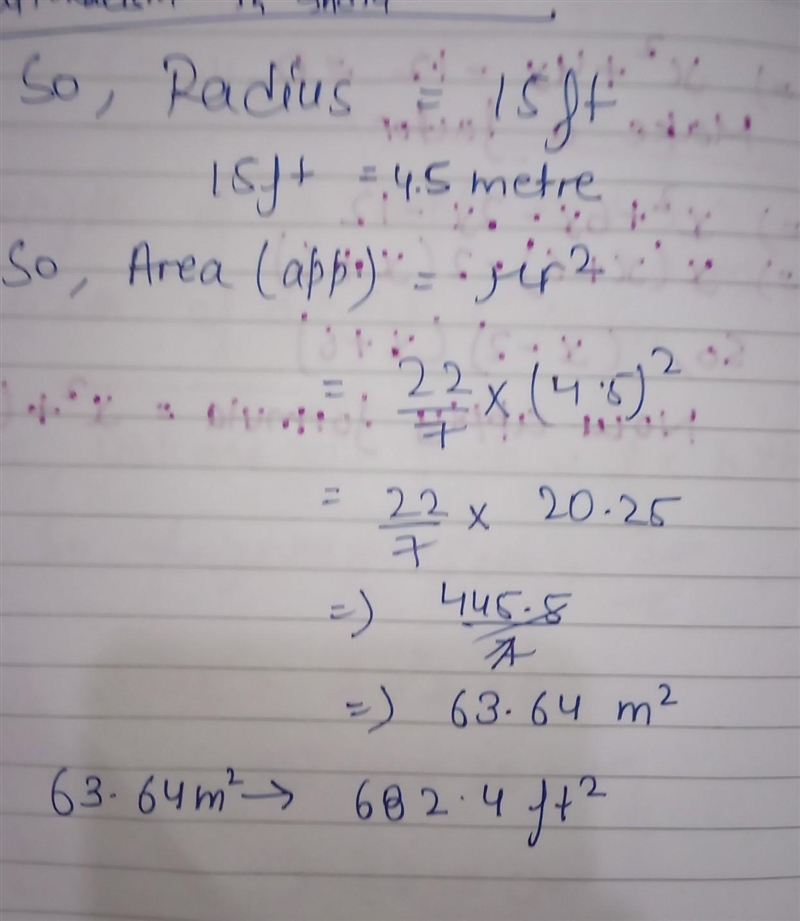 So, Radius = 15ft
15ft = 4.5 metre
So, Area (app.) = πr²
= 22/7 × (4.5)²
= 22/7 × 20.25
=) 445.5/7
=) 63.64 m²
63.64m² → 682.4 ft²